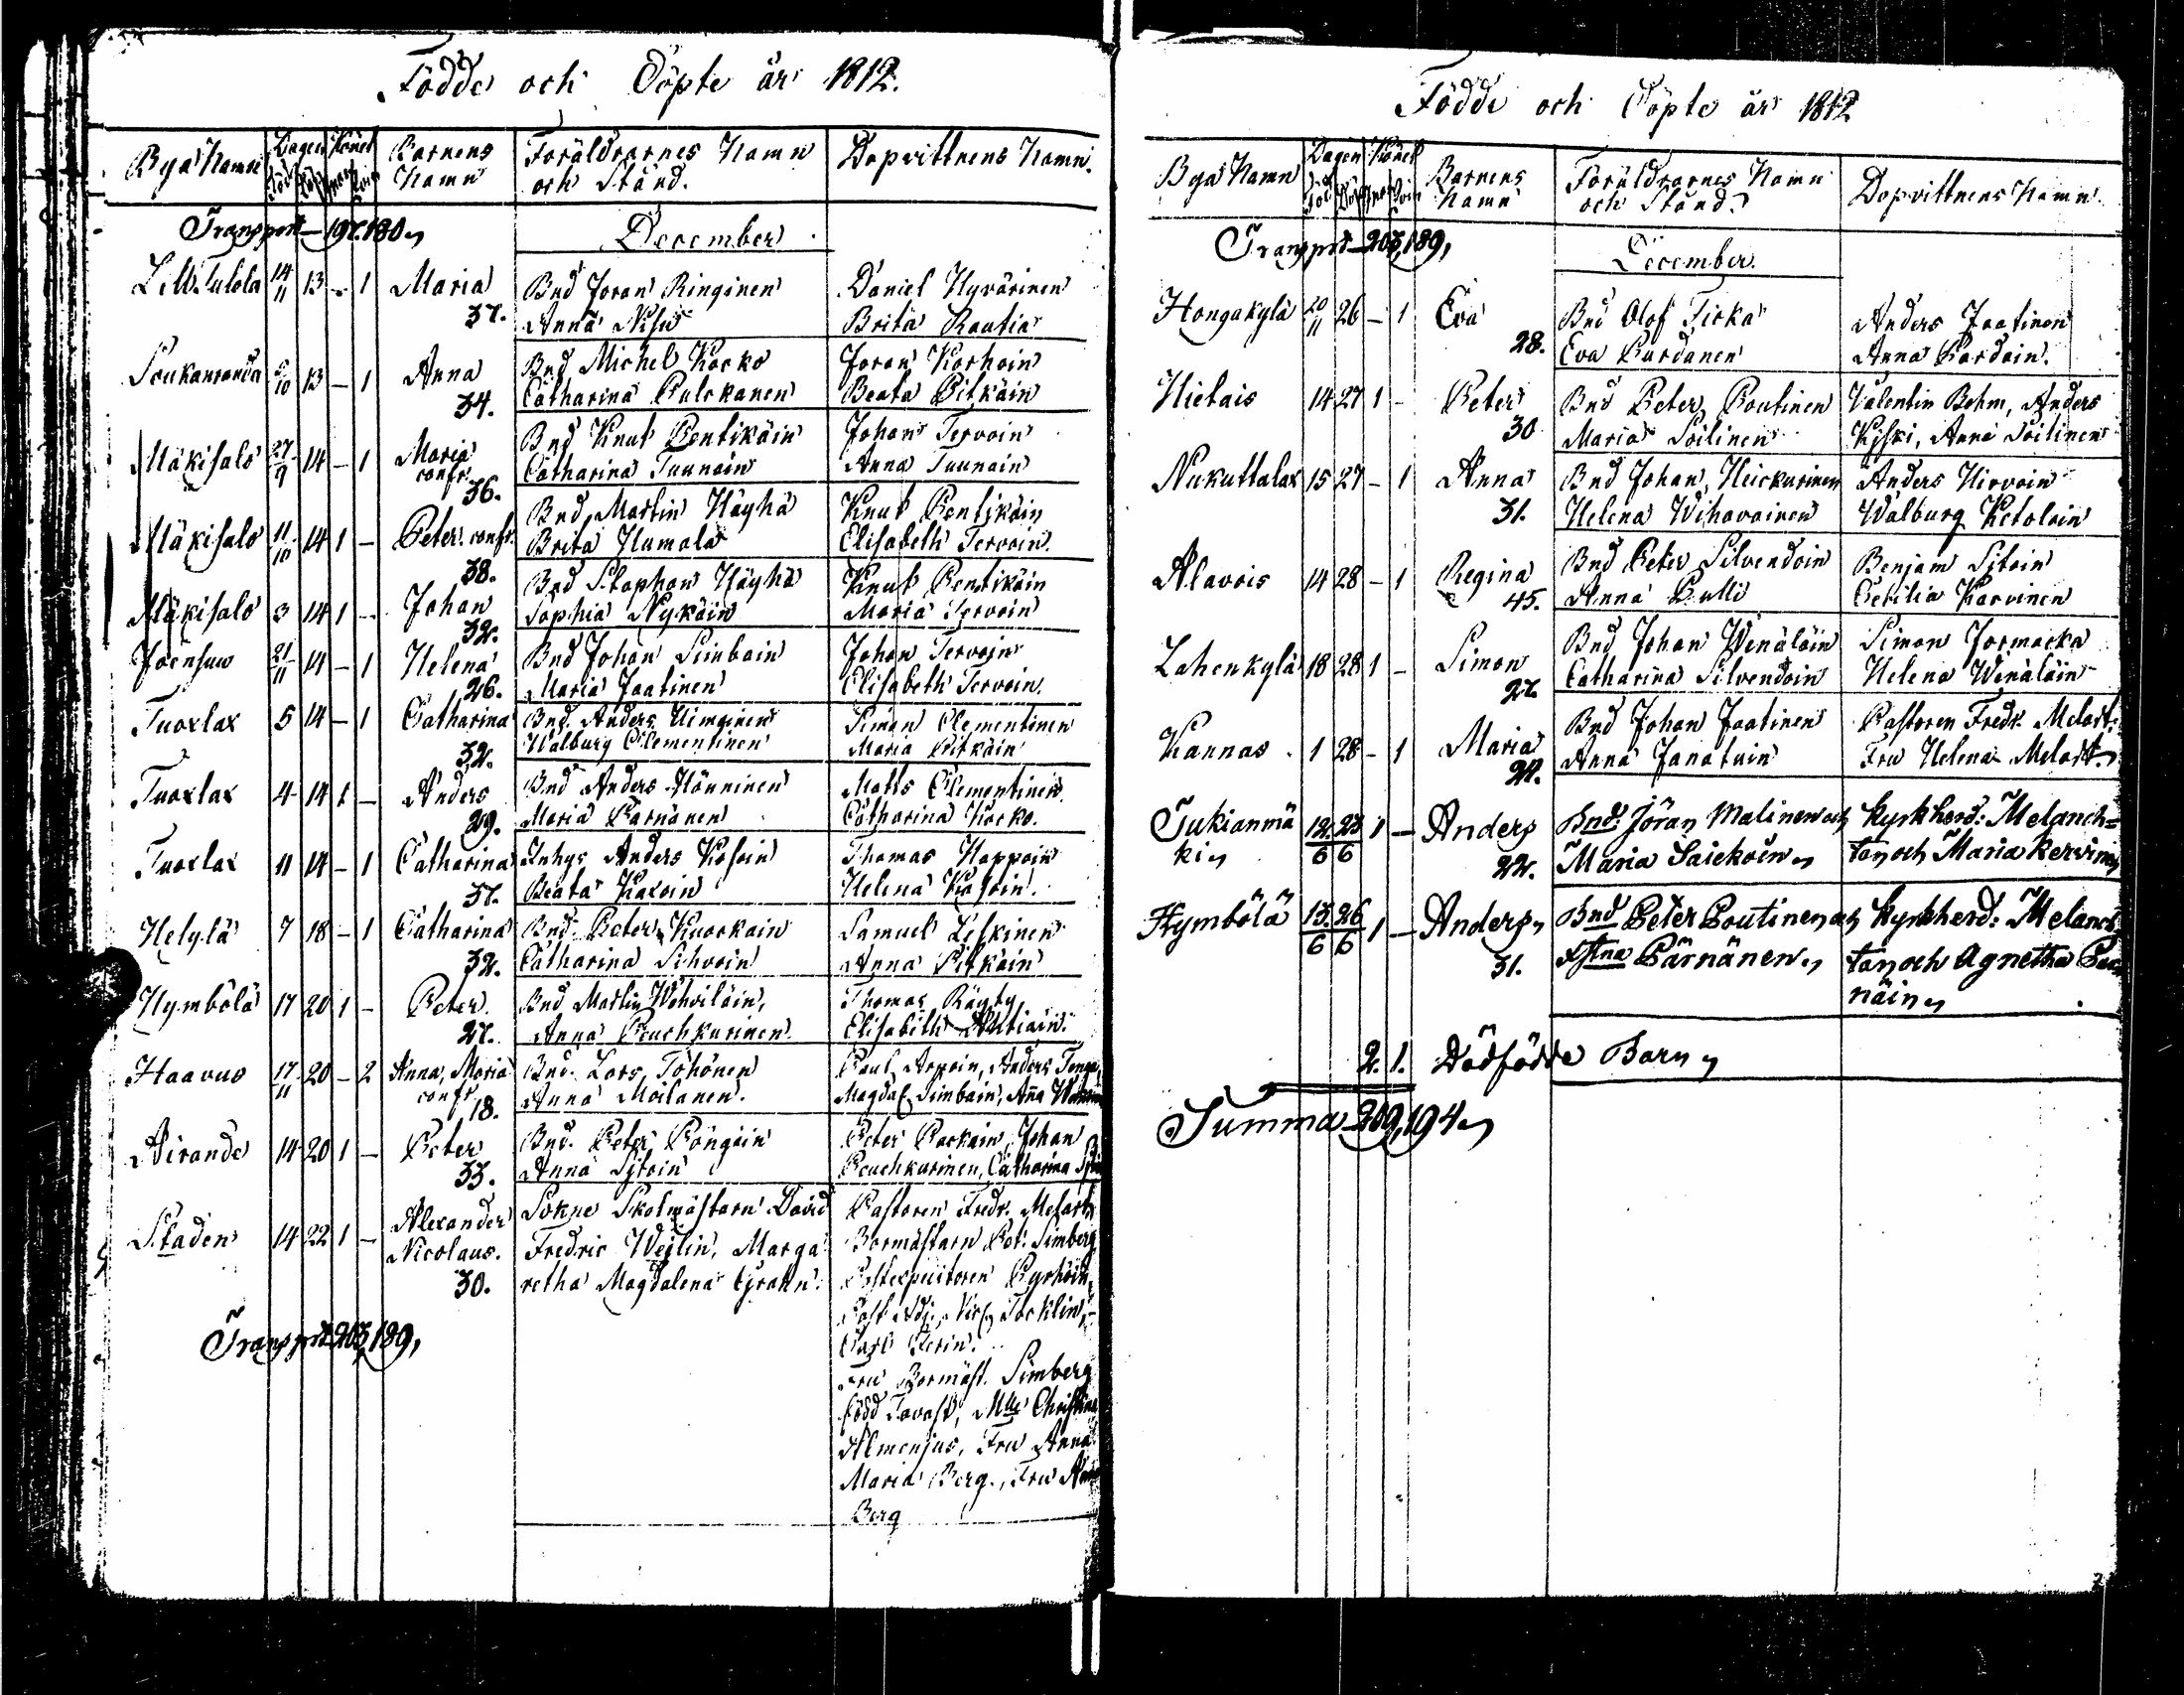 Födde och Döpte år 1812.
Bya Namn Dagen Könet Barnens Namn Föräldrarnes Namn och Stånd. Dopvittnens Namn.
Transport 197. 180
December
14/11 13 - 1 Maria Bnd Joran Ringinen Daniel Hyvärinen
37. Anna Brita Rautia
13 - 1 Anna Bnd Michel Kocko Joran Korhoin
34. Catharina Pulckanen Beata Pitkäin
Mäkisalo 27/9 14 - 1 Maria Bnd Knut Pentikäin Johan Tervoin
confr. 36. Catharina Tuunain Anna Tuunain
Mäkisalo 11/10 14 1 - Peter confr. Bnd Martin Häyhä Knut Pentikäin
38. Brita Humala Elisabeth Tervoin.
Mäkisalo 3 14 1 - Johan Bnd Stephan Häyhä Knut Pentikäin
32. Sophia Nykäin Maria Tervoin
Joensuu 21/11 14 - 1 Helena Bnd Johan Simbain Johan Tervoin
26. Maria Jaatinen Elisabeth Tervoin.
Tuoxlax 5 14 - 1 Catharina Bnd. Anders Himainen Simon Clementinen
32. Walburg Clementinen Maria Pitkäin
Tuoxlax 4 14 1 - Anders Bnd Anders Hänninen Matts Clementinen
29. Maria Parnänen Catharina Kocko.
Tuoxlax 11 14 - 1 Catharina Inhys Anders Kosoin Thomas Happoin
37. Beata Helena Kosoin.
Helylä 7 18 - 1 Catharina Bnd. Peter Kuockain Samuel Leskinen
32. Catharina Sihvoin Anna Pitkäin
Hymbölä 17 20 1 - Peter Bnd Martin Wohviläin, Thomas Räyty,
27. Anna Peuchkurinen. Elisabeth
Haavus 17/11 20 - 2 Anna, Maria Bnd. Lars Töhönen Paul
confr. 18. Anna Moilanen. Magdal. Simbain, Anna
Airande 14 20 1 - Peter Bnd. Peter Pöngäin Peter Packain, Johan
33. Anna Sitoin Peuchkurinen, Catharina
Staden 14 22 1 - Alexander Sokne Skolmästarn David Pastoren Fredr. Melart,
Nicolaus. Fredric Wejlin, Marga- Bormästarn Pet. Simberg,
30. retha Magdalena Grahn. Postexpeditoren
Transport 203, 189,
Carl
Fru Bormäst. Simberg
född Tavast, Mlle Christina
Almenius, Fru Anna
Maria Berg., Fru
Berg
Födde och Döpte år 1812
Bya Namn Dagen Könet Barnens Namn Föräldrarnes Namn och Stånd. Dopvittnens Namn.
Transport 203, 189,
December.
Hongakylä 20/11 26 - 1 Eva Bnd Olof Ticka Anders Jaatinen
28. Eva Purdanen Anna Pardain.
Hietais 14 27 1 - Peter Bnd Peter Poutinen Valentin Behm, Anders
30 Maria Soilinen Kyski, Anna Soilinen
Nukuttalax 15 27 - 1 Anna Bnd Johan Heickurinen Anders Hirvoin
31. Helena Wihavainen Walburg Ketolain
Alavois 14 28 - 1 Regina Bnd Peter Silvendoin Benjam Sitoin
45. Anna Pulli Cecilia Karvinen
Lahenkylä 18 28 1 - Simon Bnd Johan Wenäläin Simon Jormacka
27. Catharina Silvendoin Helena Wenäläin
Kannas 1 28 - 1 Maria Bnd Johan Jaatinen Pastoren Fredr. Melart.
24. Anna Janatuin Fru Helena Melart.
Tukianmä 12/6 23/6 1 - Anders Bnd: Jöran Malinen och Kyrkherd: Melanch=
ki 22. Maria Saickoin ton och Maria Kervinen
Hymbölä 13/6 26/6 1 - Anders Bnd Peter Poutinen och Kyrkherd: Melanch
31. Xstna Pärnänen ton och Agnetha
näin
2. 1. Dödfödde Barn
Summa 209, 194